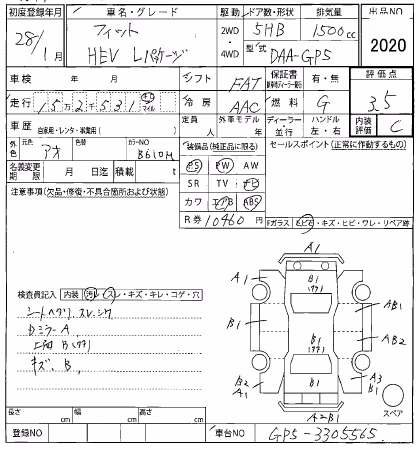 初度登録年月 車名・グレード 駆動 ドア数・形状 排気量 出品NO
28/1月 フィット 2WD 5HB 1500cc 2020
HEV Lパッケージ 4WD 型式 DAA-GP5
車検 年 月 シフト FAT 保証書 有・無 評価点
走行 152531 キロ マイル 冷房 AAC 燃料 G 3.5
車歴 自家用・レンタ・事業用( ) 定員 人 外車モデル 年 ディーラー 並行 ハンドル 左・右 内装評価 C
外色 元色 アオ 色替 カラーNO B610M 装備品(純正品に限る) セールスポイント(正常に作動するもの)
PS PW AW
名義変更期限 月 日迄 積載 t SR TV ナビ
注意事項(欠品・修復・不具合箇所および状態) カワ エアB ABS
R券 10460 円 Fガラス ヒビ・キズ・ヒビ・ワレ・リペア跡
A1
A1 B1 A1
(ワケ)
AB1
B1 B1 AB2
(ワケ)
検査員記入 内装 汚レ・スレ・キズ・キレ・コゲ・穴
シートヘタリ、スレ、シワ
DミラーA
B
キズ、B
B2 A1 B1 A3 A1
A2B1 スペア
長さ cm 幅 cm 高さ cm
登録NO 車台NO GP5-3305565